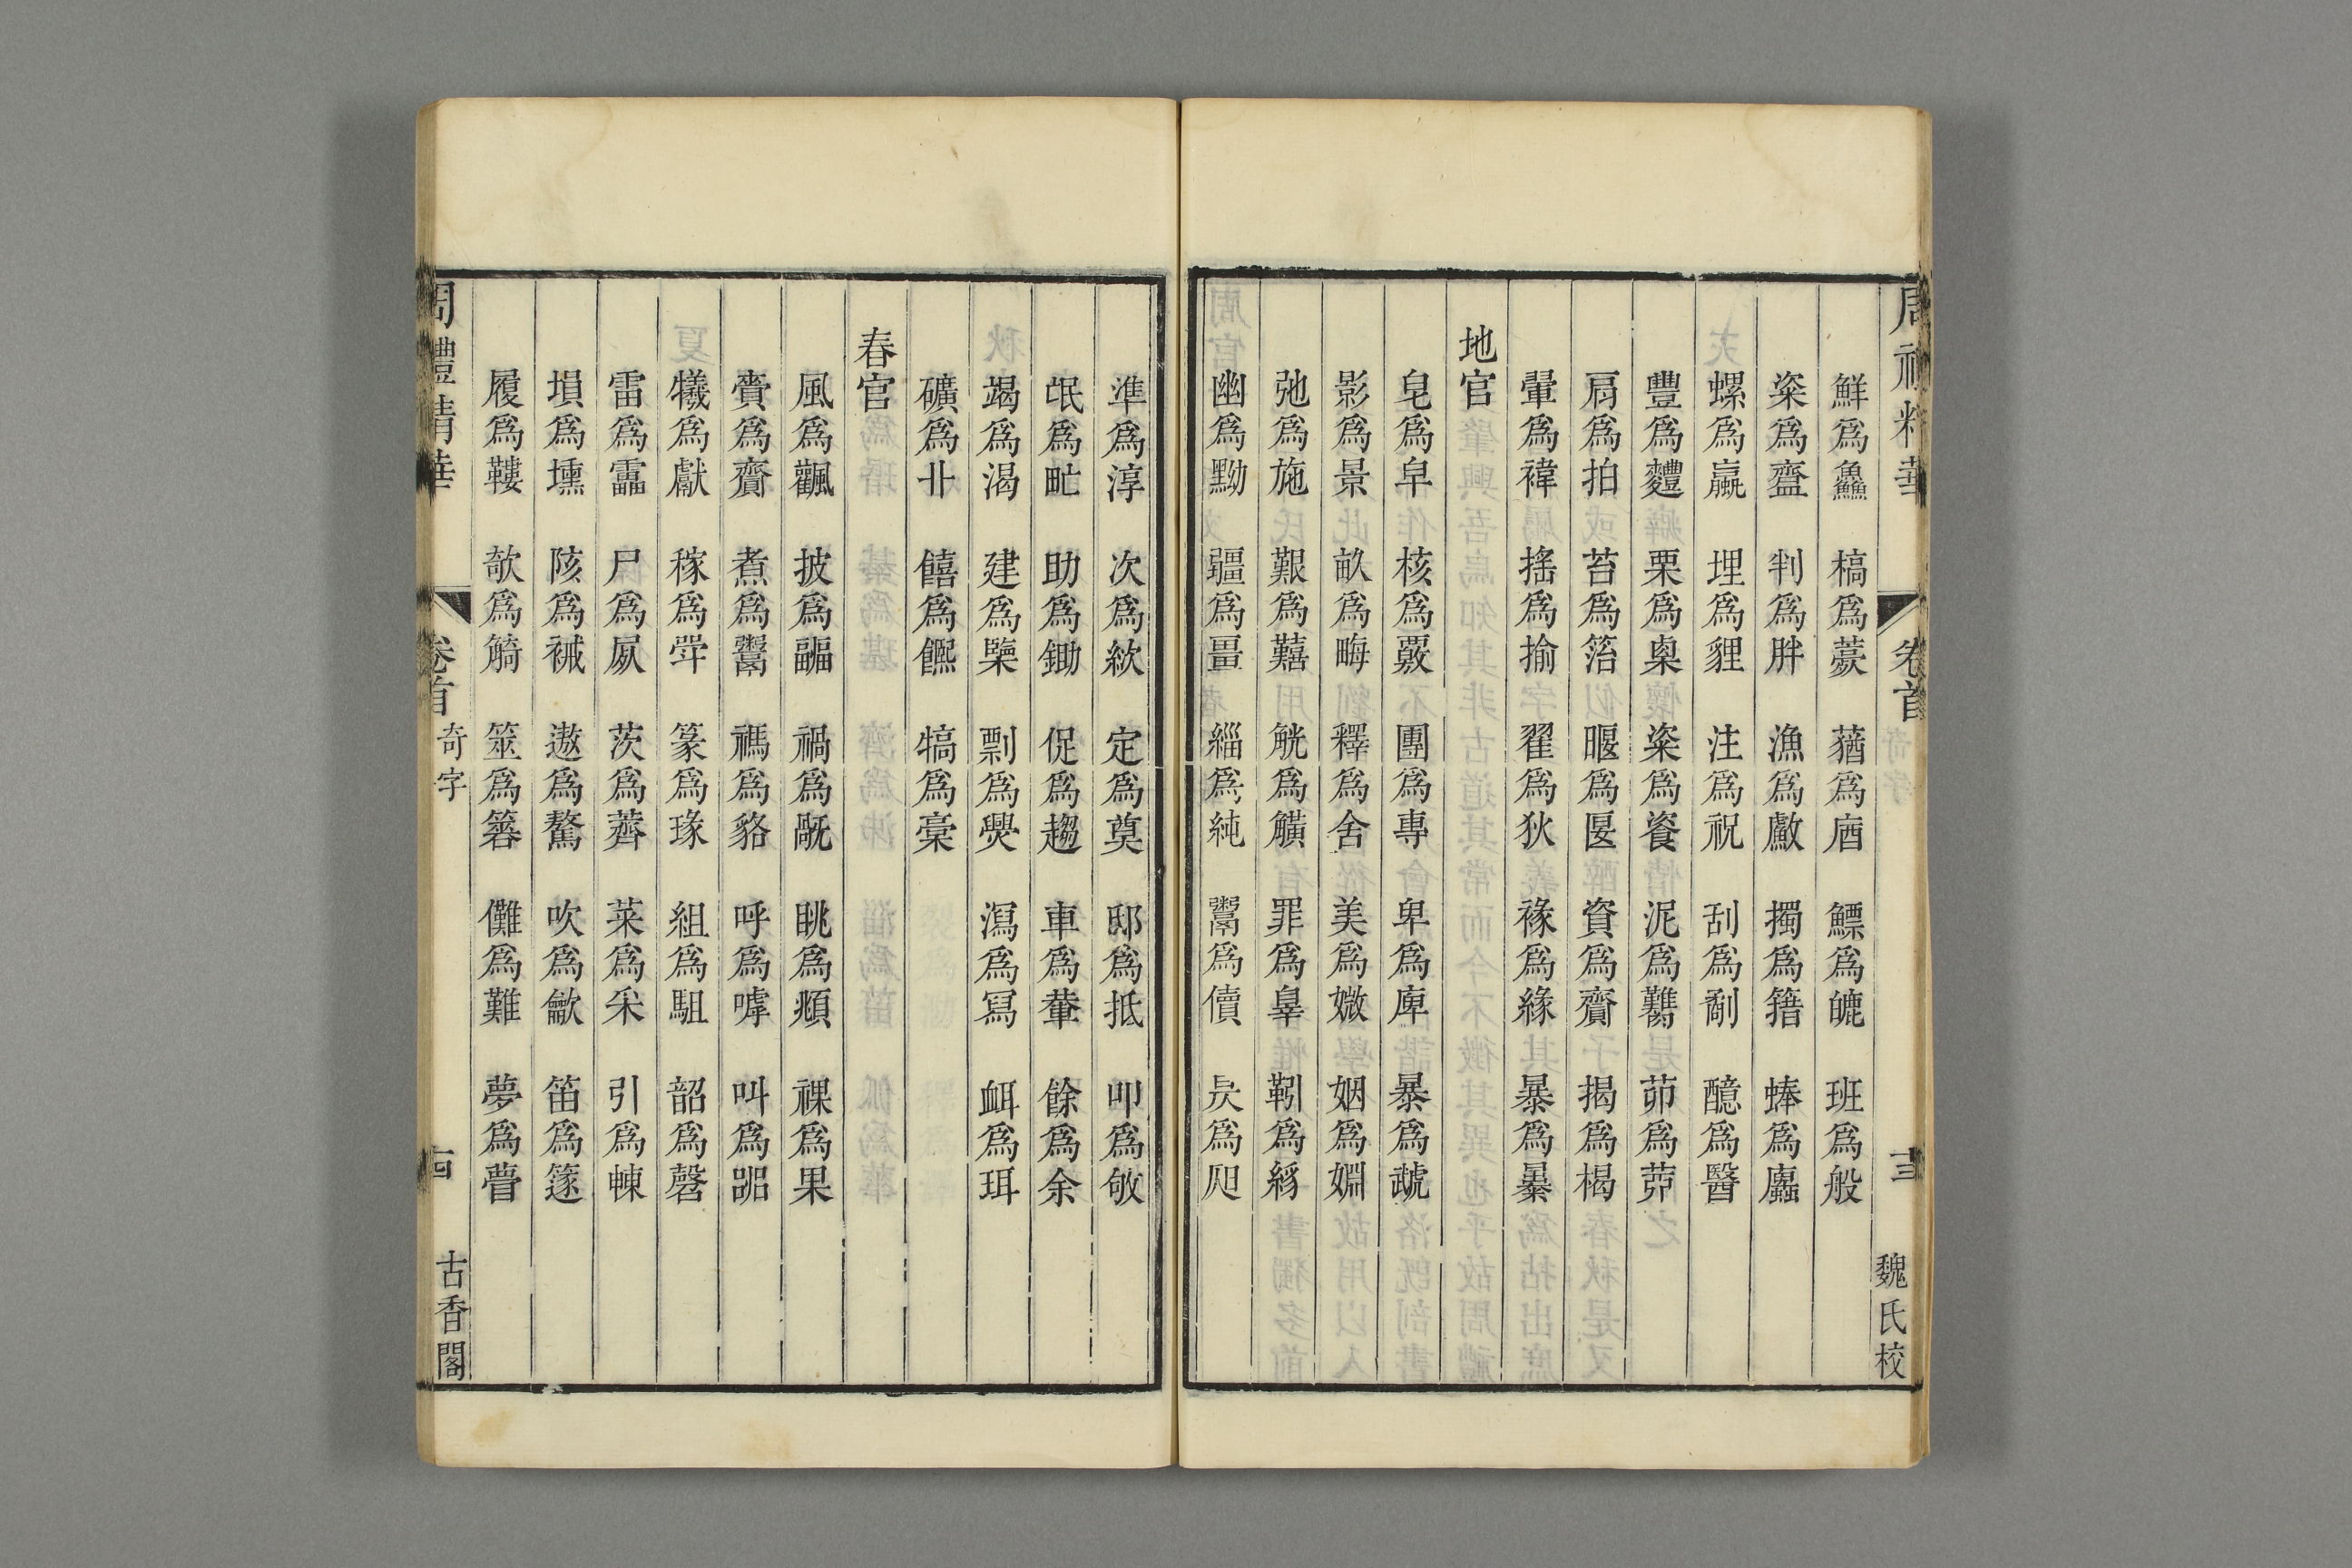 周禮精華 卷首 十三 魏氏校
鮮爲鱻 槁爲薧 蕕爲庮 鰾爲皫 班爲般
粢爲齍 判爲胖 漁爲䱷 擉爲籍 蜯爲蠯
螺爲蠃 埋爲貍 注爲祝 刮爲劀 醷爲醫
豐爲麷 栗爲㮚 粢爲餈 泥爲臡 茆爲茆
肩爲拍 苔爲箈 暱爲匽 資爲齎 揭爲楬
翬爲褘 搖爲揄 翟爲狄 褖爲緣 暴爲㬥
地官
皂爲皁 核爲覈 團爲專 卑爲庳 暴爲虣
影爲景 畝爲畮 釋爲舍 美爲媺 姻爲婣
弛爲施 艱爲囏 觥爲觵 罪爲辠 靷爲絼
幽爲黝 疆爲畺 緇爲純 鬻爲儥 昃爲㫊
準爲淳 次爲絘 定爲奠 邸爲抵 叩爲敂
氓爲甿 助爲鋤 促爲趨 車爲輂 餘爲余
竭爲渴 建爲㯺 剽爲㶾 瀉爲寫 衈爲珥
礦爲卝 饎爲饎 犒爲槀
春官
風爲飌 披爲疈 禍爲 眺爲頫 祼爲果
賚爲齎 煮爲鬻 禡爲貉 呼爲嘑 叫爲嘂
犧爲獻 稼爲斝 篆爲瑑 組爲駔 韶爲磬
雷爲靁 尸爲 茨爲薺 菜爲采 引爲㯥
塤爲壎 陔爲祴 遨爲驁 吹爲龡 笛爲篴
履爲鞻 欹爲觭 筮爲簭 儺爲難 夢爲瞢
周禮精華 卷首 奇字 十四 古香閣